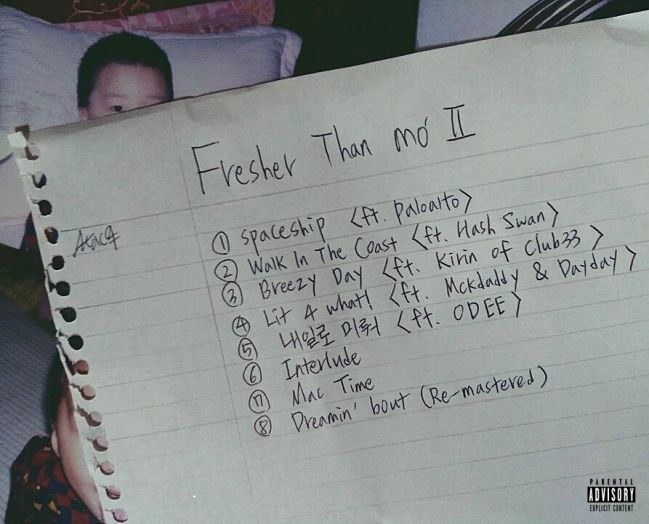 Fresher Than mo' II
① spaceship <ft. Paloalto>
② Walk In The Coast <ft. Hash Swan>
③ Breezy Day <ft. Kirin of Club33>
④ Lit 4 what! <ft. Mckdaddy & Dayday>
⑤ 내일로 미뤄 <ft. ODEE>
⑥ Interlude
⑦ Mac Time
⑧ Dreamin' bout (Re-mastered)
PARENTAL
ADVISORY
EXPLICIT CONTENT